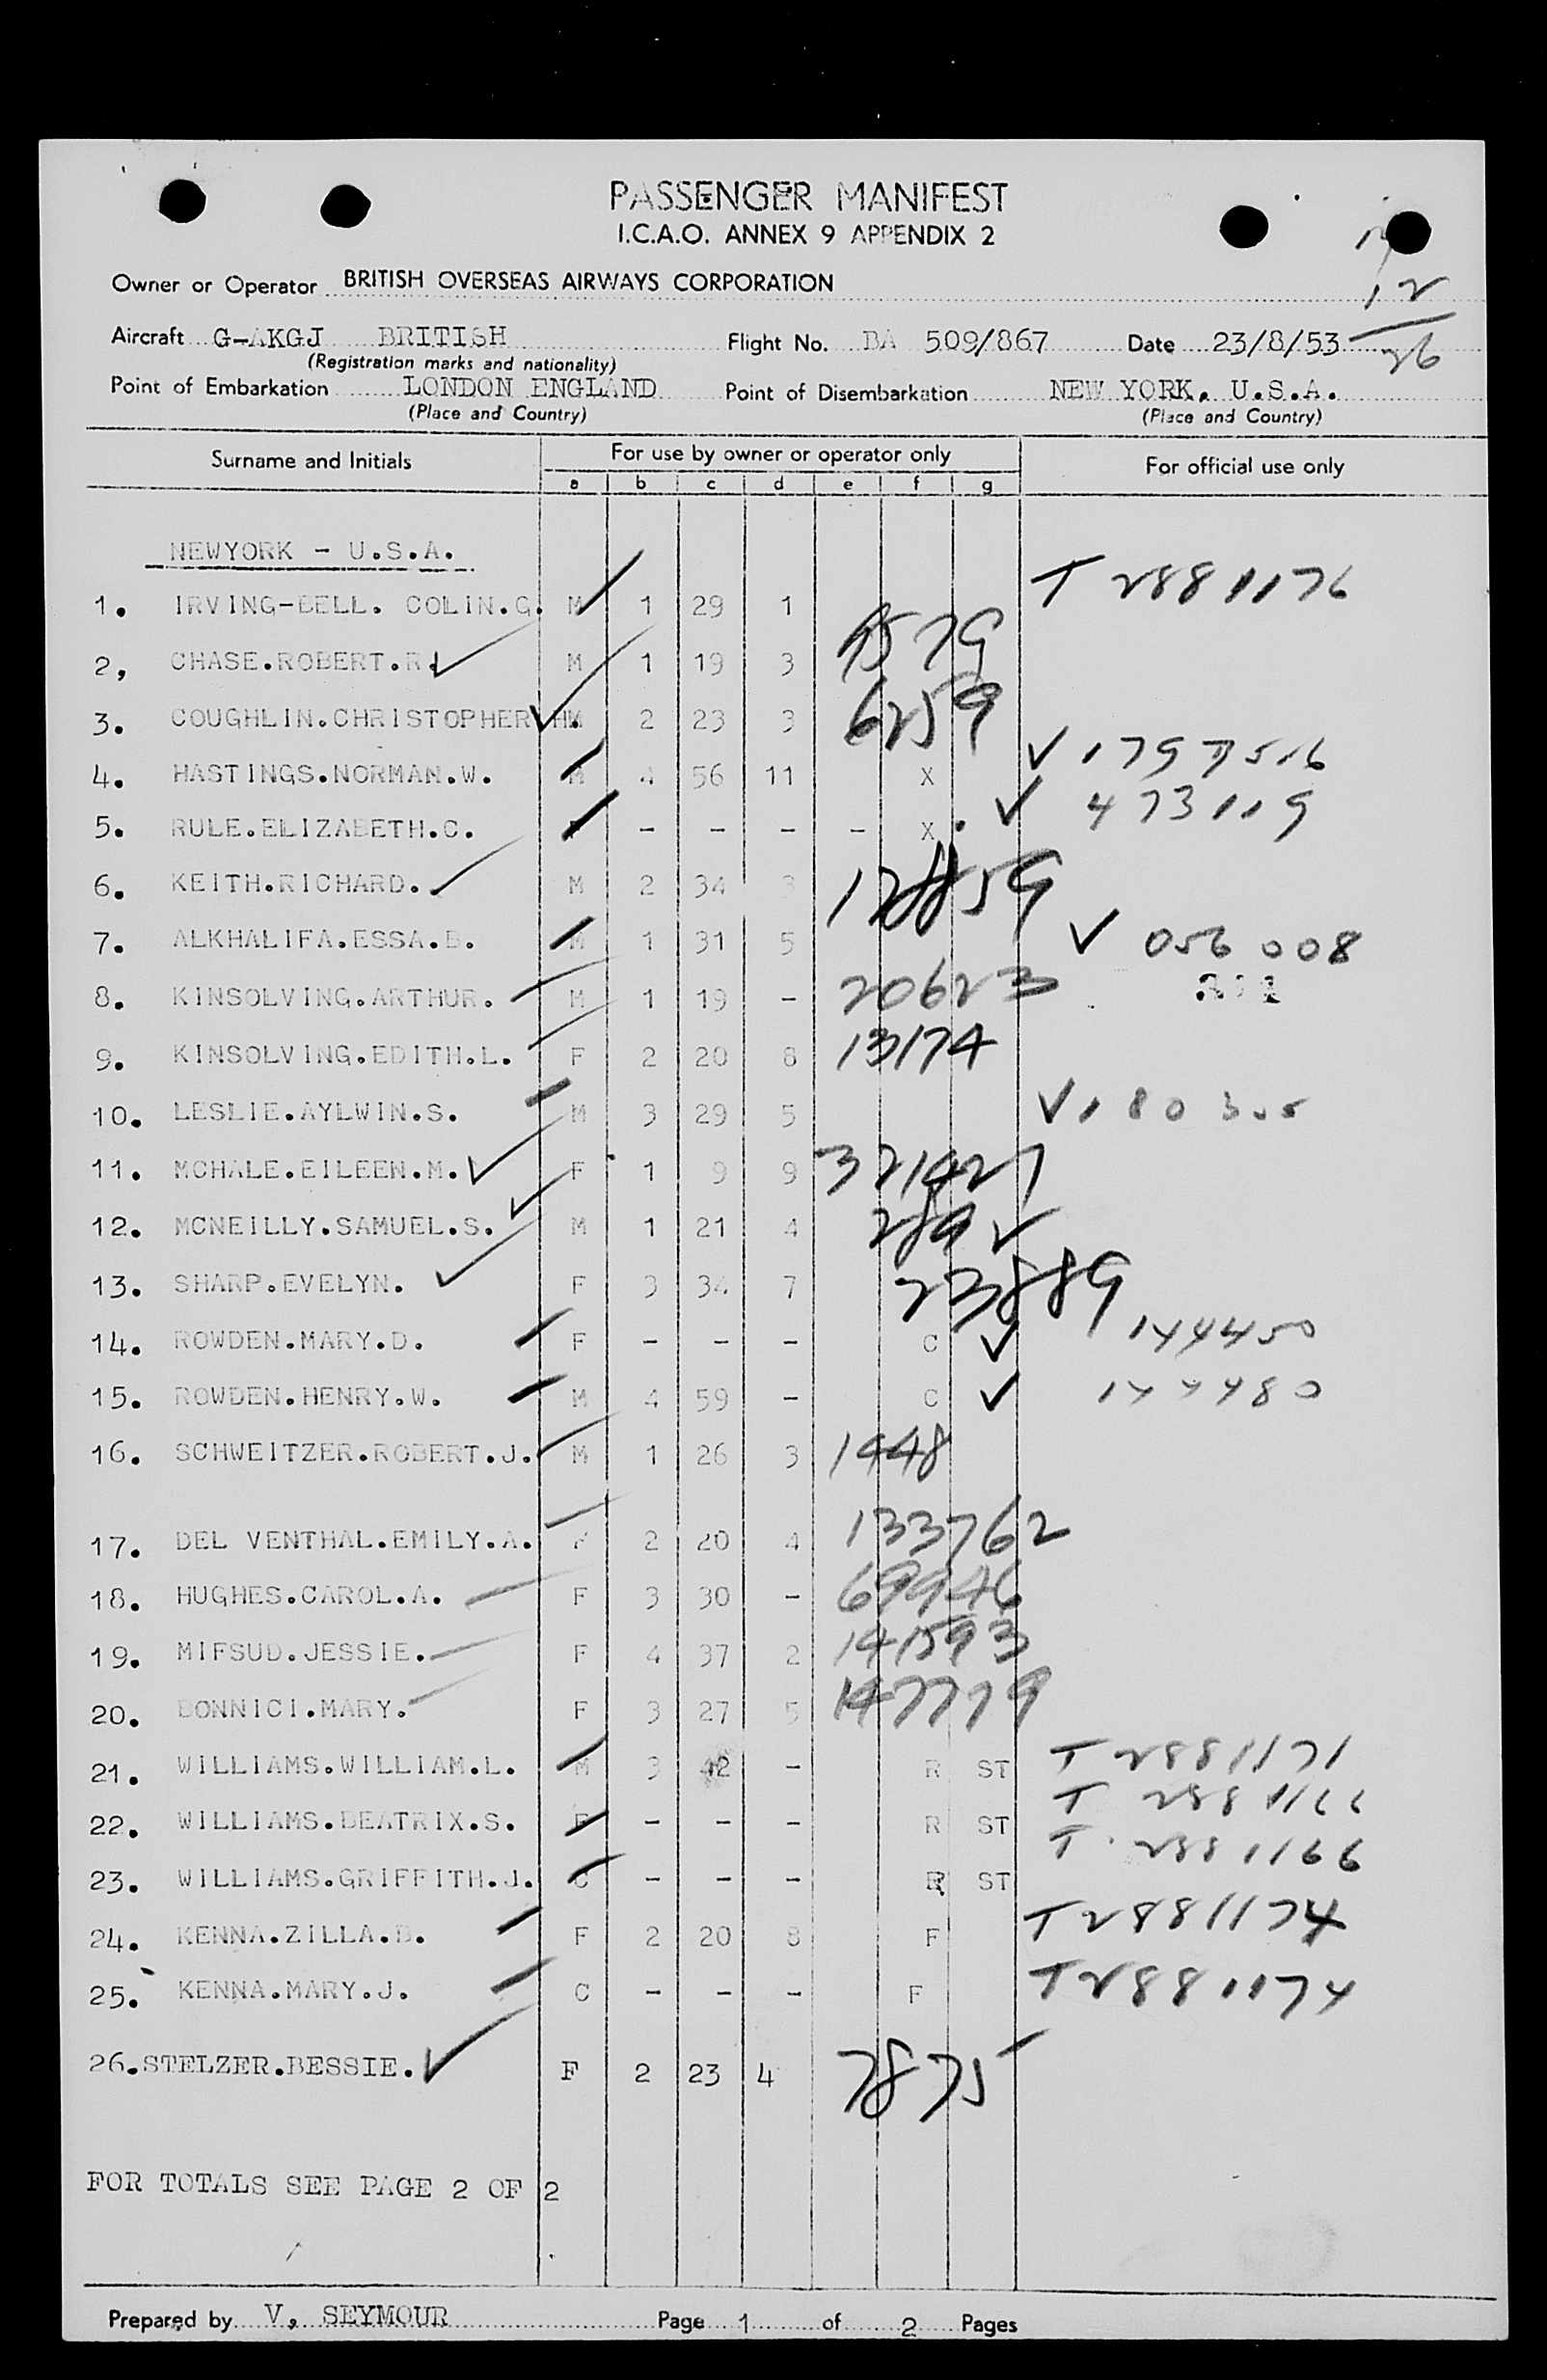 PASSENGER MANIFEST
I.C.A.O. ANNEX 9 APPENDIX 2
12
26
Owner or Operator BRITISH OVERSEAS AIRWAYS CORPORATION
Aircraft G-AKGJ BRITISH Flight No. BA 509/867 Date 23/8/53
(Registration marks and nationality)
Point of Embarkation LONDON ENGLAND Point of Disembarkation NEW YORK. U.S.A.
(Place and Country) (Place and Country)
Surname and Initials For use by owner or operator only For official use only
a b c d e f g
NEWYORK - U.S.A.
1. IRVING-BELL. COLIN.G. M 1 29 1 T 2881176
2, CHASE.ROBERT.R. M 1 19 3
3. COUGHLIN.CHRISTOPHER HM. 2 23 3 6259
4. HASTINGS.NORMAN.W. M 4 56 11 X
5. RULE.ELIZABETH.C. F - - - - X. 473119
6. KEITH.RICHARD. M 2 34 3
7. ALKHALIFA.ESSA.B. M 1 31 5 056008
8. KINSOLVING.ARTHUR. M 1 19 - 20623
9. KINSOLVING.EDITH.L. F 2 20 8 13174
10. LESLIE.AYLWIN.S. M 3 29 5
11. MCHALE.EILEEN.M. F 1 9 9 321427
12. MCNEILLY.SAMUEL.S. M 1 21 4 289
13. SHARP.EVELYN. F 3 34 7 23889
14. ROWDEN.MARY.D. F - - - C 144450
15. ROWDEN.HENRY.W. M 4 59 - C 144480
16. SCHWEITZER.ROBERT.J. M 1 26 3 1448
17. DEL VENTHAL.EMILY.A. F 2 20 4 133762
18. HUGHES.CAROL.A. F 3 30 - 69946
19. MIFSUD.JESSIE. F 4 37 2 141593
20. BONNICI.MARY. F 3 27 5 147779
21. WILLIAMS.WILLIAM.L. M 3 42 - R ST T 2881171
22. WILLIAMS.BEATRIX.S. F - - - R ST T 2881166
23. WILLIAMS.GRIFFITH.J. C - - - R ST T 2881166
24. KENNA.ZILLA.B. F 2 20 8 F T2881174
25. KENNA.MARY.J. C - - - F T2881174
26.STELZER.BESSIE. F 2 23 4 7875
FOR TOTALS SEE PAGE 2 OF 2
Prepared by V, SEYMOUR Page 1 of 2 Pages